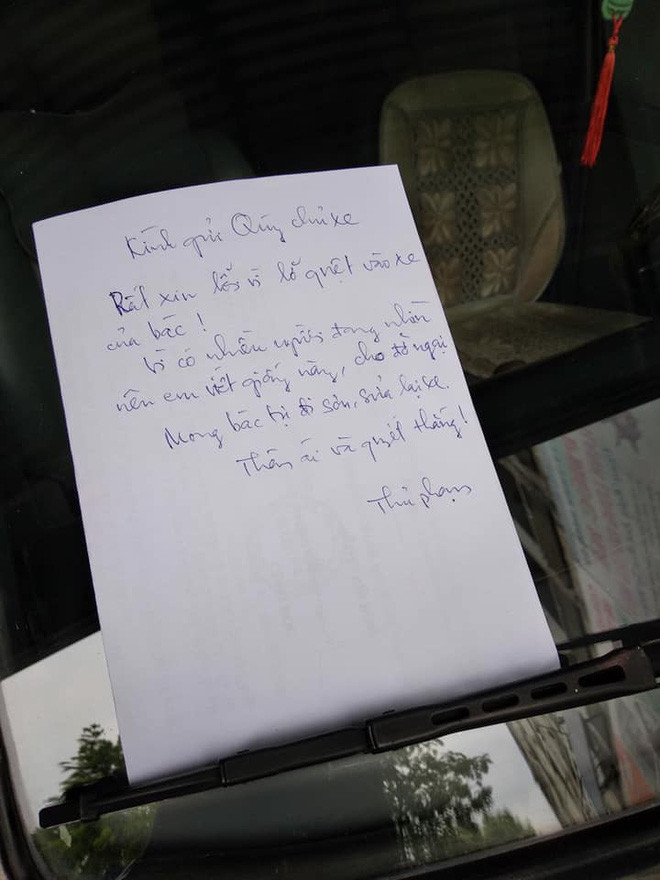 Kính gửi Quý chủ xe
Rất xin lỗi vì lỡ quệt vào xe
của bác !
Vì có nhiều người đang nhìn
nên em viết giấy này, cho đỡ ngại
Mong bác tự đi sơn, sửa lại xe.
Thân ái và quyết thắng!
Thủ phạm